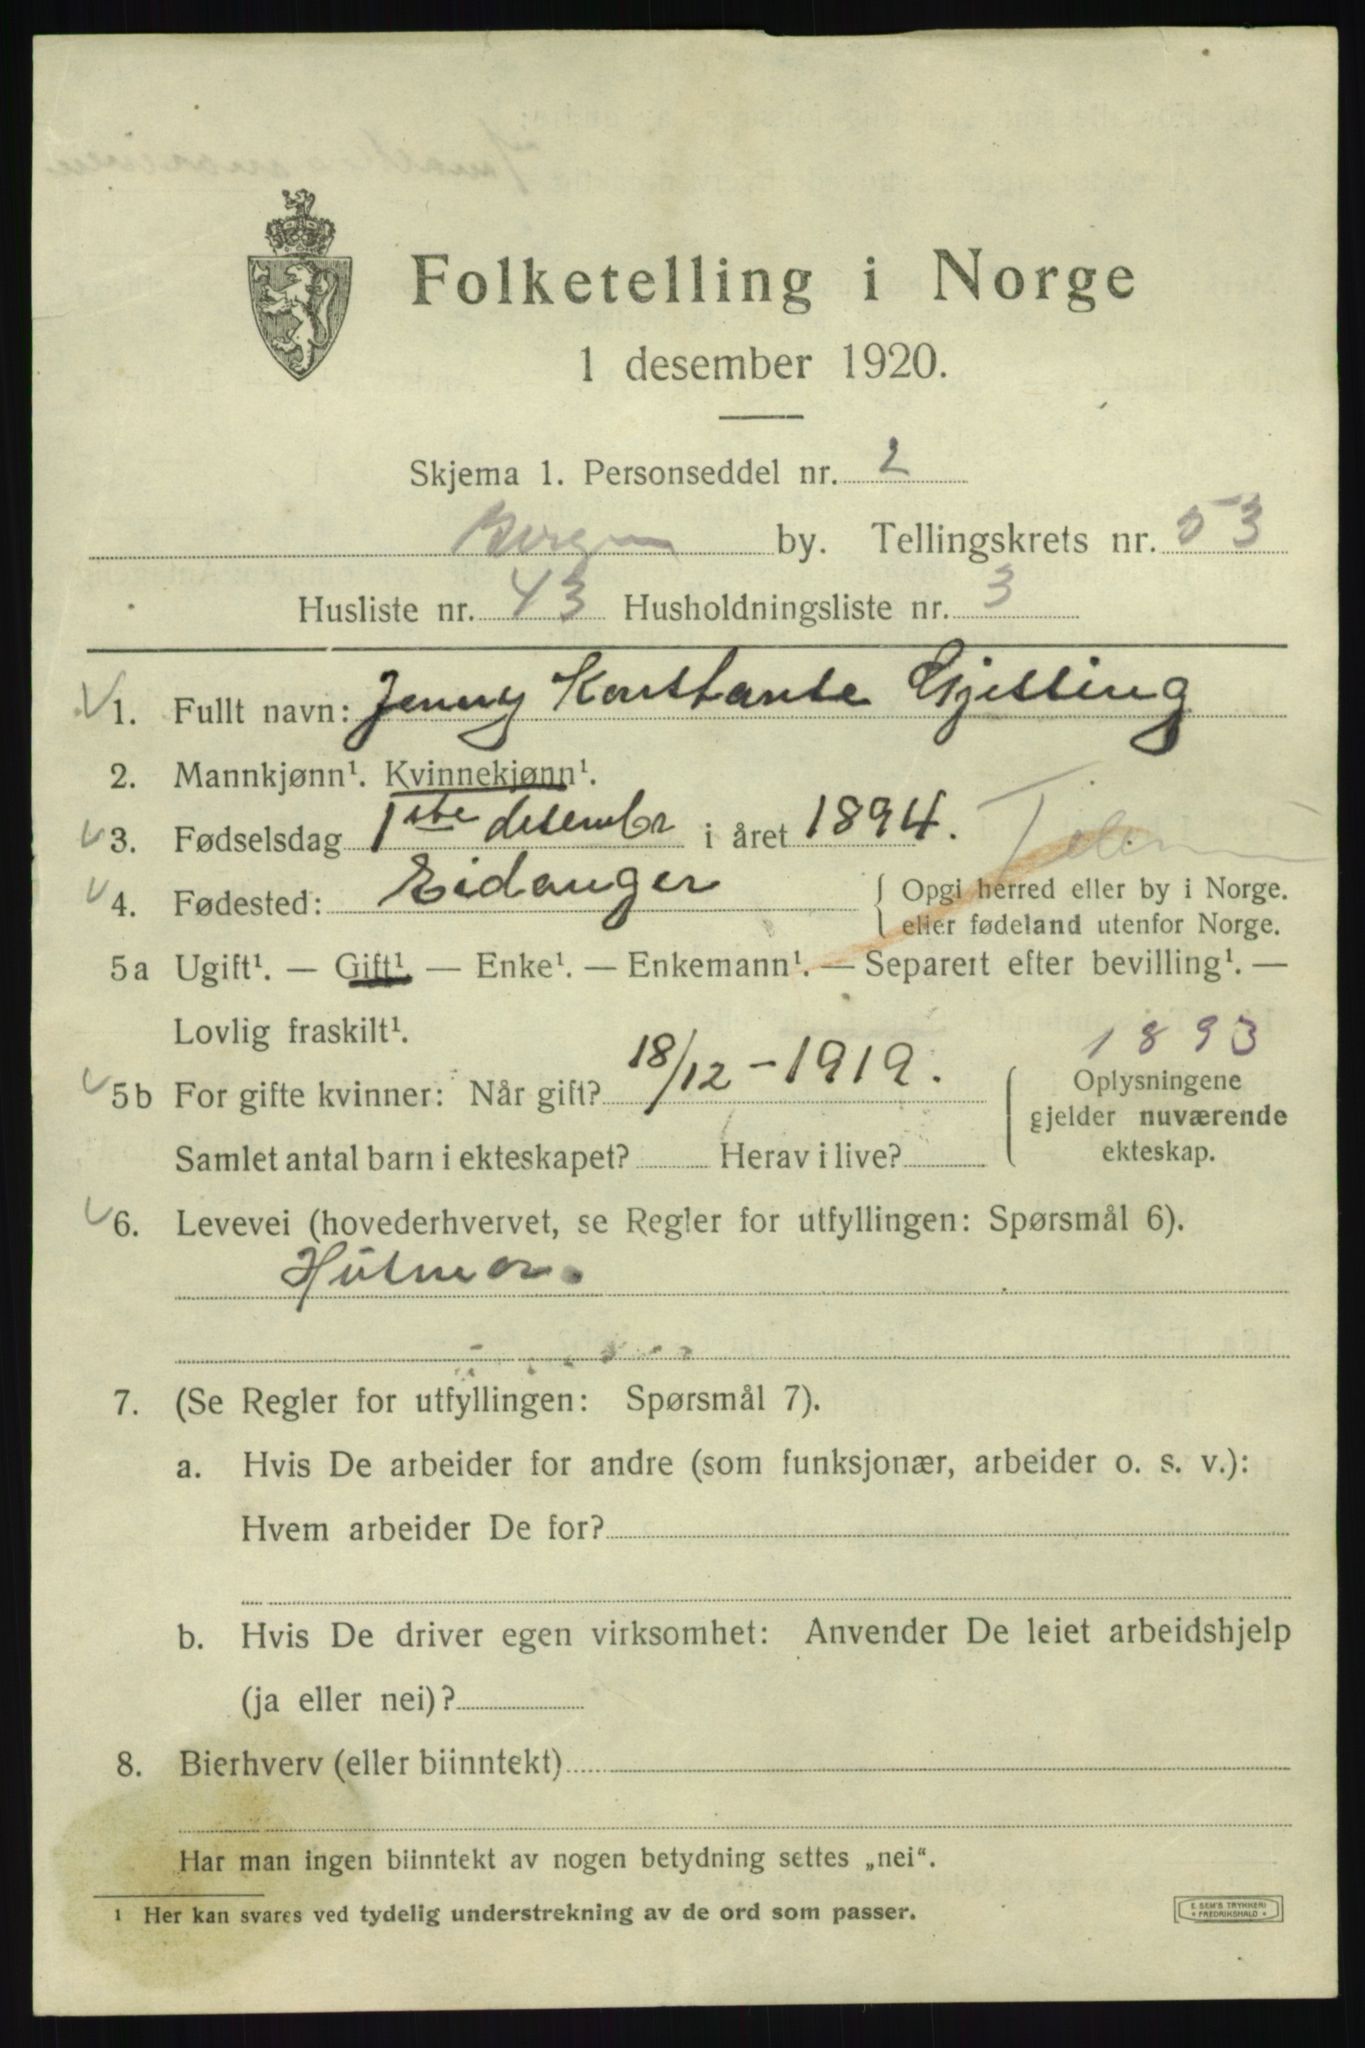 Folketelling i Norge
1 desember 1920.
Skjema 1. Personseddel nr. 2
Bergen by. Tellingskrets nr. 53
Husliste nr. 43 Husholdningsliste nr. 3
1. Fullt navn: Jenny Konstanse Gjesling
2. Mannkjønn¹. Kvinnekjønn¹.
3. Fødselsdag 1ste desember i året 1894.
4. Fødested: Eidanger { Opgi herred eller by i Norge.
eller fødeland utenfor Norge.
5a Ugift¹. — Gift¹ — Enke¹. — Enkemann¹. — Separert efter bevilling¹. —
Lovlig fraskilt¹.
1893
5b For gifte kvinner: Når gift? 18/12 - 1919. Oplysningene
gjelder nuværende
Samlet antal barn i ekteskapet? Herav i live? ekteskap.
6. Levevei (hovederhvervet, se Regler for utfyllingen: Spørsmål 6).
Husmor.
7. (Se Regler for utfyllingen: Spørsmål 7).
a. Hvis De arbeider for andre (som funksjonær, arbeider o. s. v.):
Hvem arbeider De for?
b. Hvis De driver egen virksomhet: Anvender De leiet arbeidshjelp
(ja eller nei)?
8. Bierhverv (eller biinntekt)
Har man ingen biinntekt av nogen betydning settes „nei“.
¹ Her kan svares ved tydelig understrekning av de ord som passer.
E. SEM'S TRYKKERI
* FREDRIKSHALD *